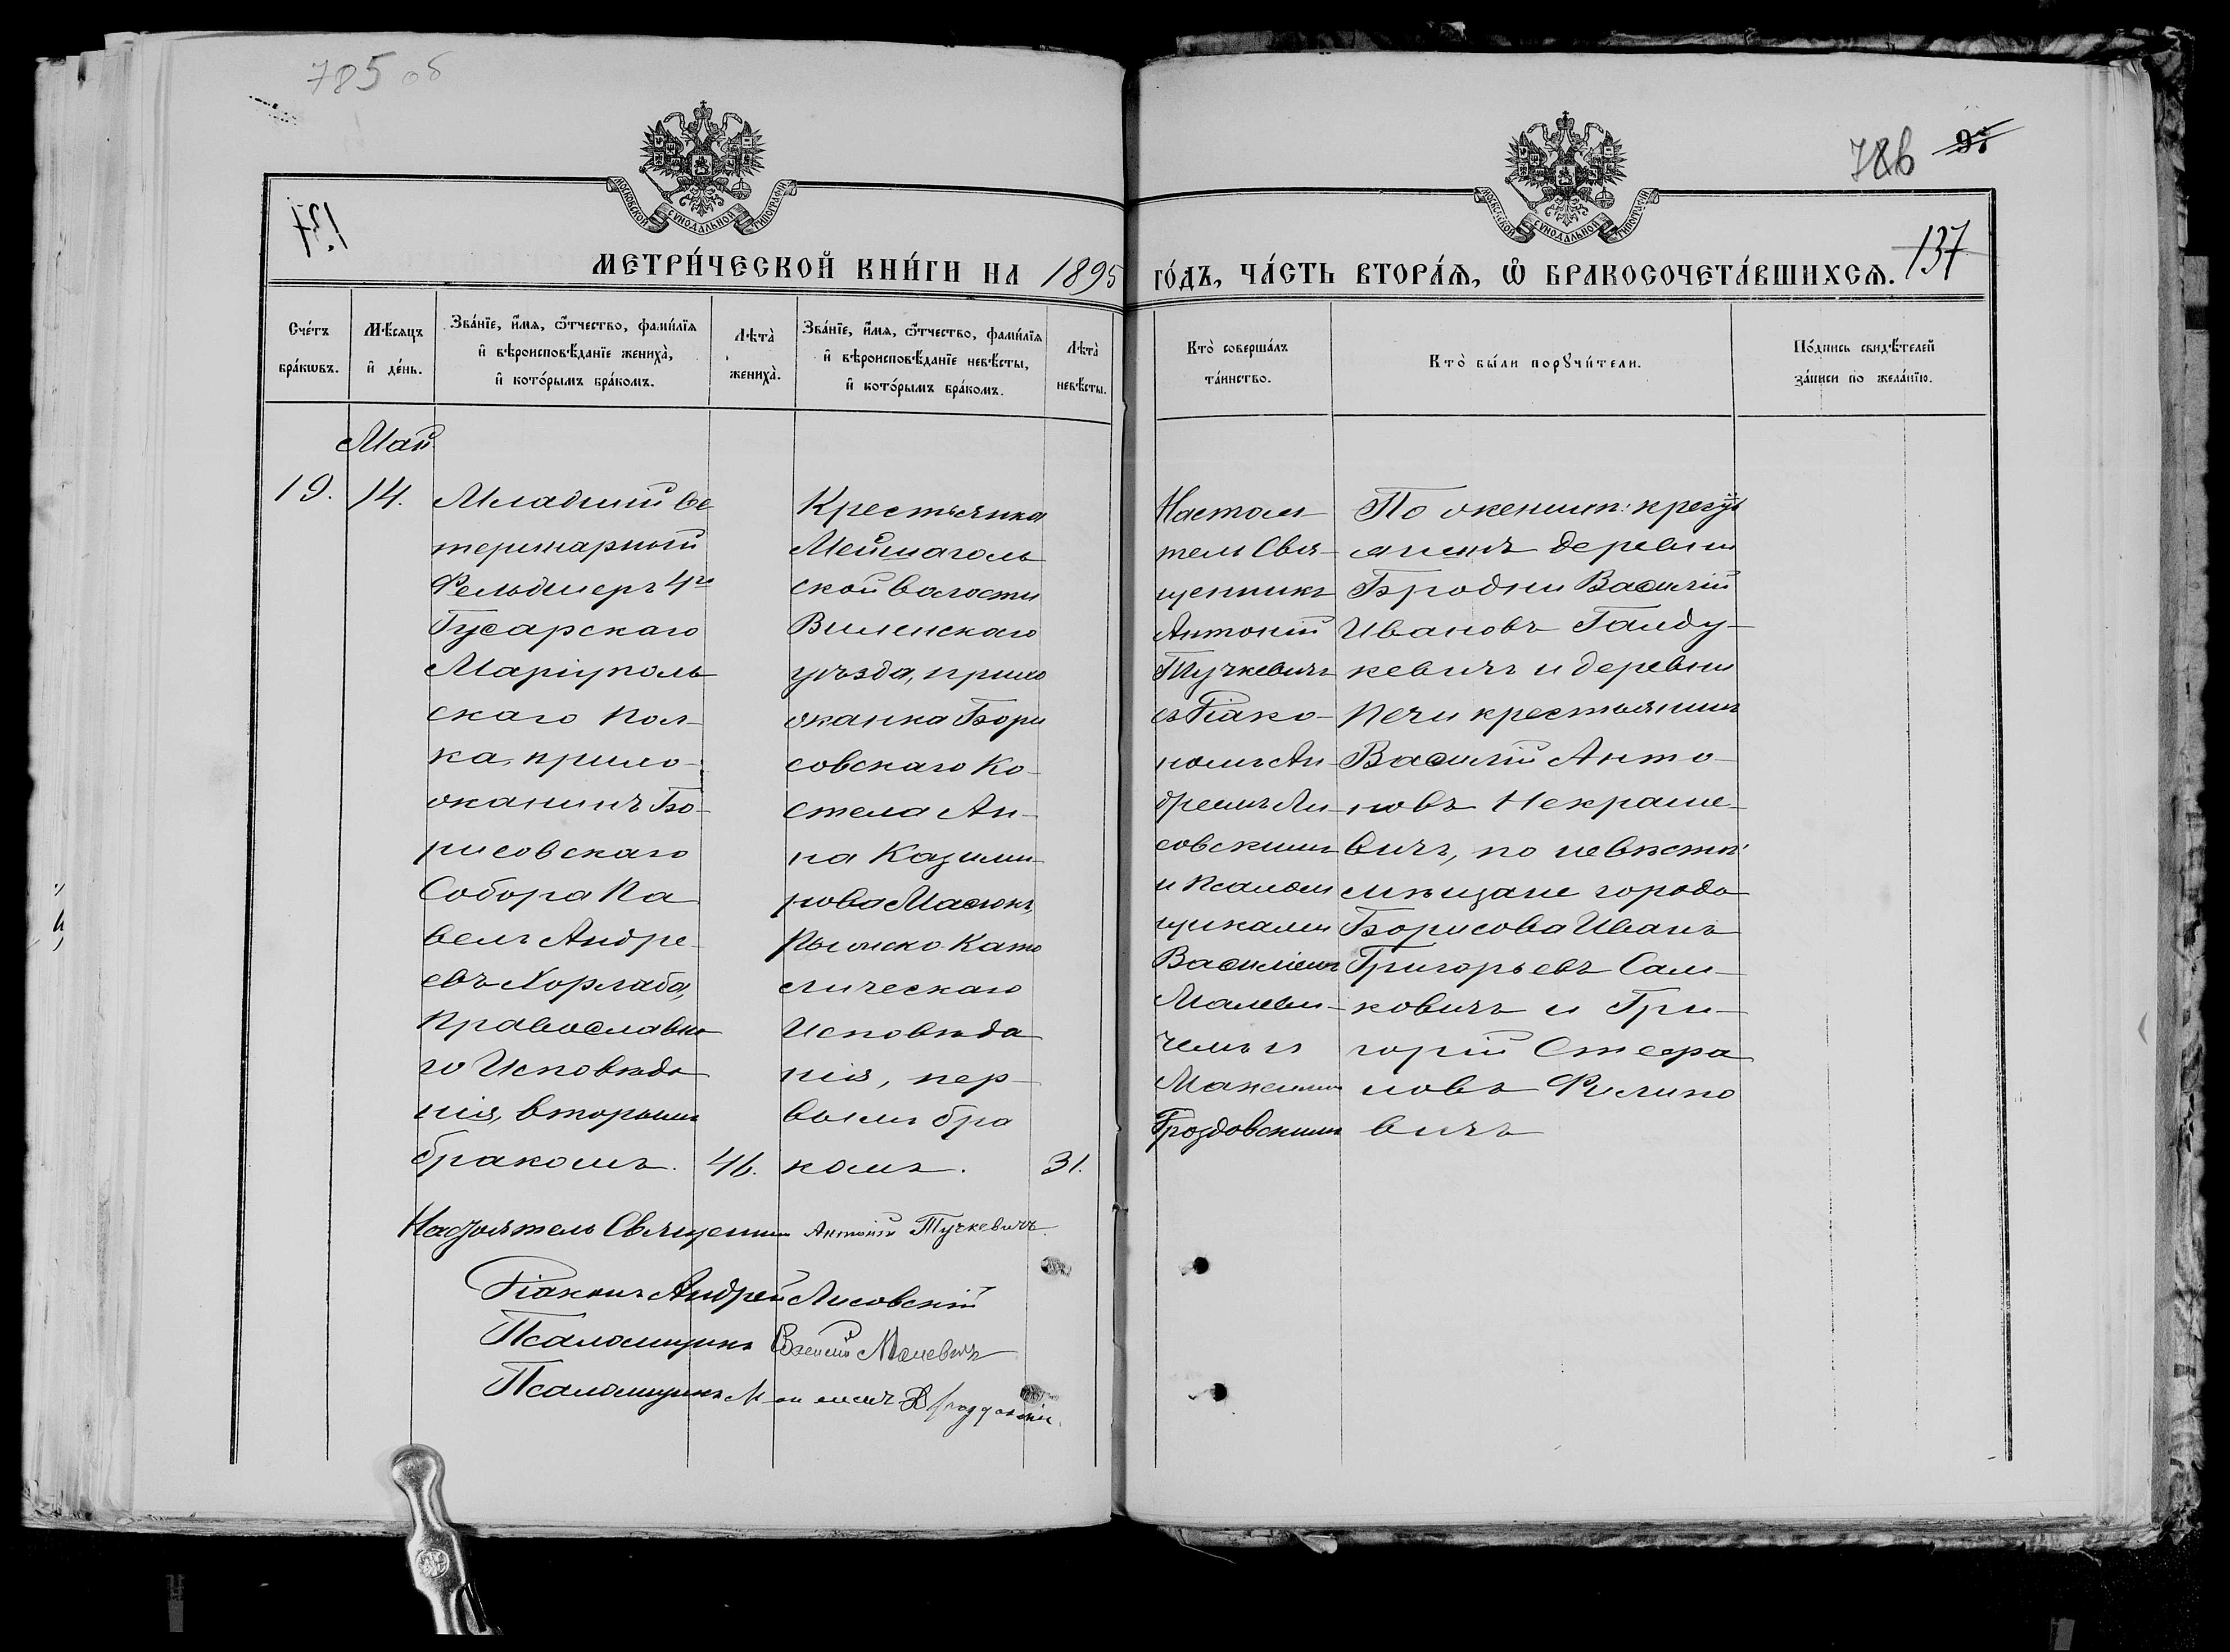 785 об
786 95
137
МОСКОВСКОЙ СѴНОДАЛЬНОЙ ТИПОГРАФІИ
МОСКОВСКОЙ СѴНОДАЛЬНОЙ ТИПОГРАФІИ
МЕТРИ́ЧЕСКОЙ КНИ́ГИ НА 1895 ГО́ДЪ, ЧА́СТЬ ВТОРА́Ѧ, Ѽ БРАКОСОЧЕТА́ВШИХСѦ.
137
Сче́тъ
бра́кѡвъ.
Мѣ́сѧцъ
и҆ де́нь.
Зва́нїе, и҆́мѧ, ѻ҆́тчество, фами́лїѧ
и҆ вѣроисповѣ́данїе жениха̀,
и҆ кото́рымъ бра́комъ.
Лѣта̀
жениха̀.
Зва́нїе, и҆́мѧ, ѻ҆́тчество, фами́лїѧ
и҆ вѣроисповѣ́данїе невѣ́сты,
и҆ кото́рымъ бра́комъ.
Лѣта̀
невѣ́сты.
Кто̀ соверша́лъ
та́инство.
Кто̀ бы́ли порꙋчи́тели.
По́дпись свидѣ́телей
за́писи по жела́нїю.
Май
19.
14.
Младшій ве
теринарный
Фельдшеръ 4го
Гусарскаго
Маріуполь
скаго Пол-
ка, прихо-
жанинъ Бо-
рисовскаго
Собора Па
велъ Андре-
евъ Хорлаба,
Православна
го Исповѣда
нія, вторымъ
бракомъ.
46.
Крестьянка
Мейшаголь
ской волости
Виленскаго
уѣзда, прихо
жанка Бори
совскаго Ко-
стела Ан-
на Казими-
рова Масюкъ,
Римско Като
лическаго
Исповѣда
нія, пер-
вымъ бра
комъ.
31.
Настоя-
тель Свя-
щенникъ
Антоній
Тучкевичъ
съ Діако-
номъ Ан-
дреемъ Ли-
совскимъ
и Псалом
щиками
Василіемъ
Малеви-
чемъ и
Максимом
Гроздовскимъ
По женихѣ: кресть
янинъ деревни
Бродни Василій
Ивановъ Гайду-
кевичъ и деревни
Печи крестьянинъ
Василій Анто-
новъ Некраше-
вичъ, по невѣстѣ:
мѣщане города
Борисова Иванъ
Григорьевъ Сал-
ковичъ и Гри-
горій Стефа
новъ Филипо
вичъ
Настоятель Священник Антоній Тучкевичъ.
Діаконъ Андрей Лисовскій
Псаломщикъ Василій Малевичъ
Псаломщикъ Максимъ Гроздовскій.